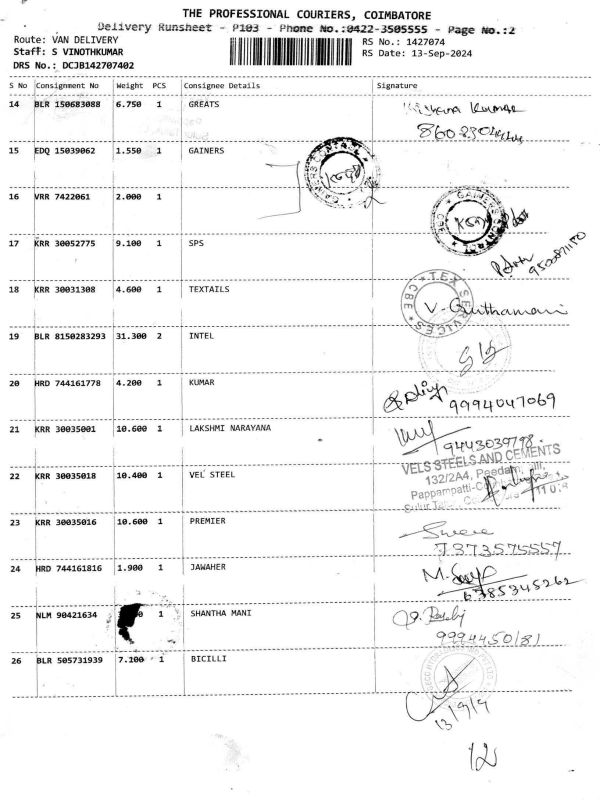 THE PROFESSIONAL COURIERS, COIMBATORE
Delivery Runsheet - P103 - Phone No.:0422-3505555 - Page No.:2
Route: VAN DELIVERY
RS No.: 1427074
Staff: S VINOTHKUMAR
RS Date: 13-Sep-2024
DRS No.: DCJB142707402
S No Consignment No Weight PCS Consignee Details Signature
14 BLR 150683088 6.750 1 GREATS
Kumar
15 EDQ 15039062 1.550 1 GAINERS
GAINERS CONTRACT
16 VRR 7422061 2.000 1
GAINERS CONTRACT CBE
17 KRR 30052775 9.100 1 SPS
18 KRR 30031308 4.600 1 TEXTAILS
TEX SERVICES CBE
19 BLR 8150283293 31.300 2 INTEL
20 HRD 744161778 4.200 1 KUMAR
9994047069
21 KRR 30035001 10.600 1 LAKSHMI NARAYANA
9443039798
VELS STEELS AND CEMENTS
132/2A4,
22 KRR 30035018 10.400 1 VEL STEEL
Pappampatti-
23 KRR 30035016 10.600 1 PREMIER
7373575557
24 HRD 744161816 1.900 1 JAWAHER
6385345262
25 NLM 90421634 1 SHANTHA MANI
9994450181
26 BLR 505731939 7.100 1 BICILLI
13/9/9
12